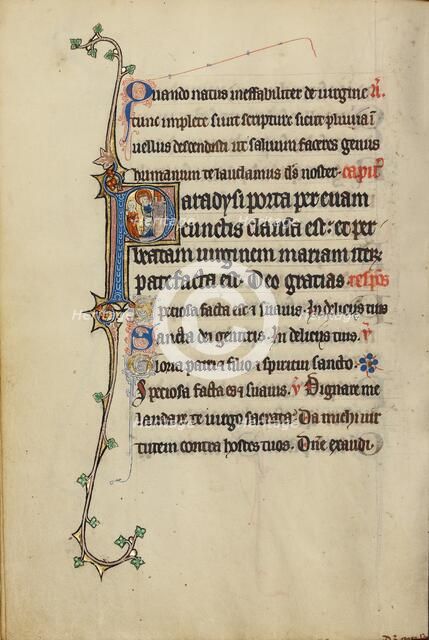 Quando natus ineffabiliter de virgine a.
tunc implete sunt scripture sicut pluvia i
vellus descendisti ut salvum faceres genus
humanum te laudamus ds noster. capit
Paradysi porta per evam
cunctis clausa est: et per
beatam virginem mariam iteꝝ
patefacta est. Deo gratias. respons
Speciosa facta es et suavis. In deliciis tuis
Sancta dei genitrix. In deliciis tuis. v
Gloria patri et filio et spiritui sancto.
Speciosa facta es et suavis. v Dignare me
laudare te virgo sacrata. Da michi vir
tutem contra hostes tuos. Dne exaudi.
Heritage
Images